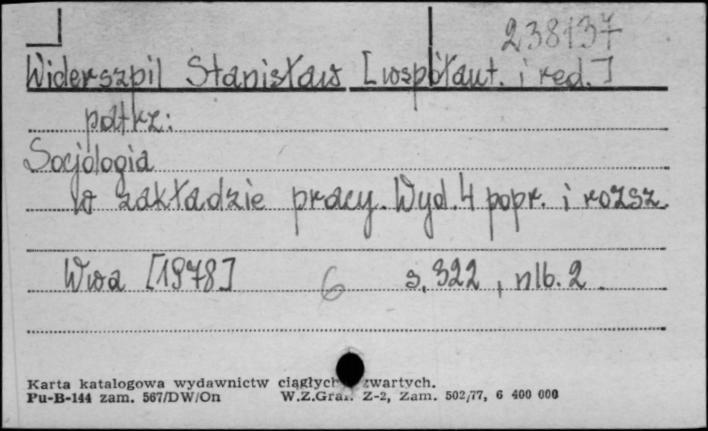 238137
Widerszpil Stanisław [współaut. i red.]
patrz:
Socjologia
w zakładzie pracy. Wyd. 4 popr. i rozsz.
Wwa [1978] 6 s. 322, nlb. 2.
Karta katalogowa wydawnictw ciągłych zwartych.
Pu-B-144 zam. 567/DW/On W.Z.Graf. Z-2, Zam. 502/77, 6 400 000